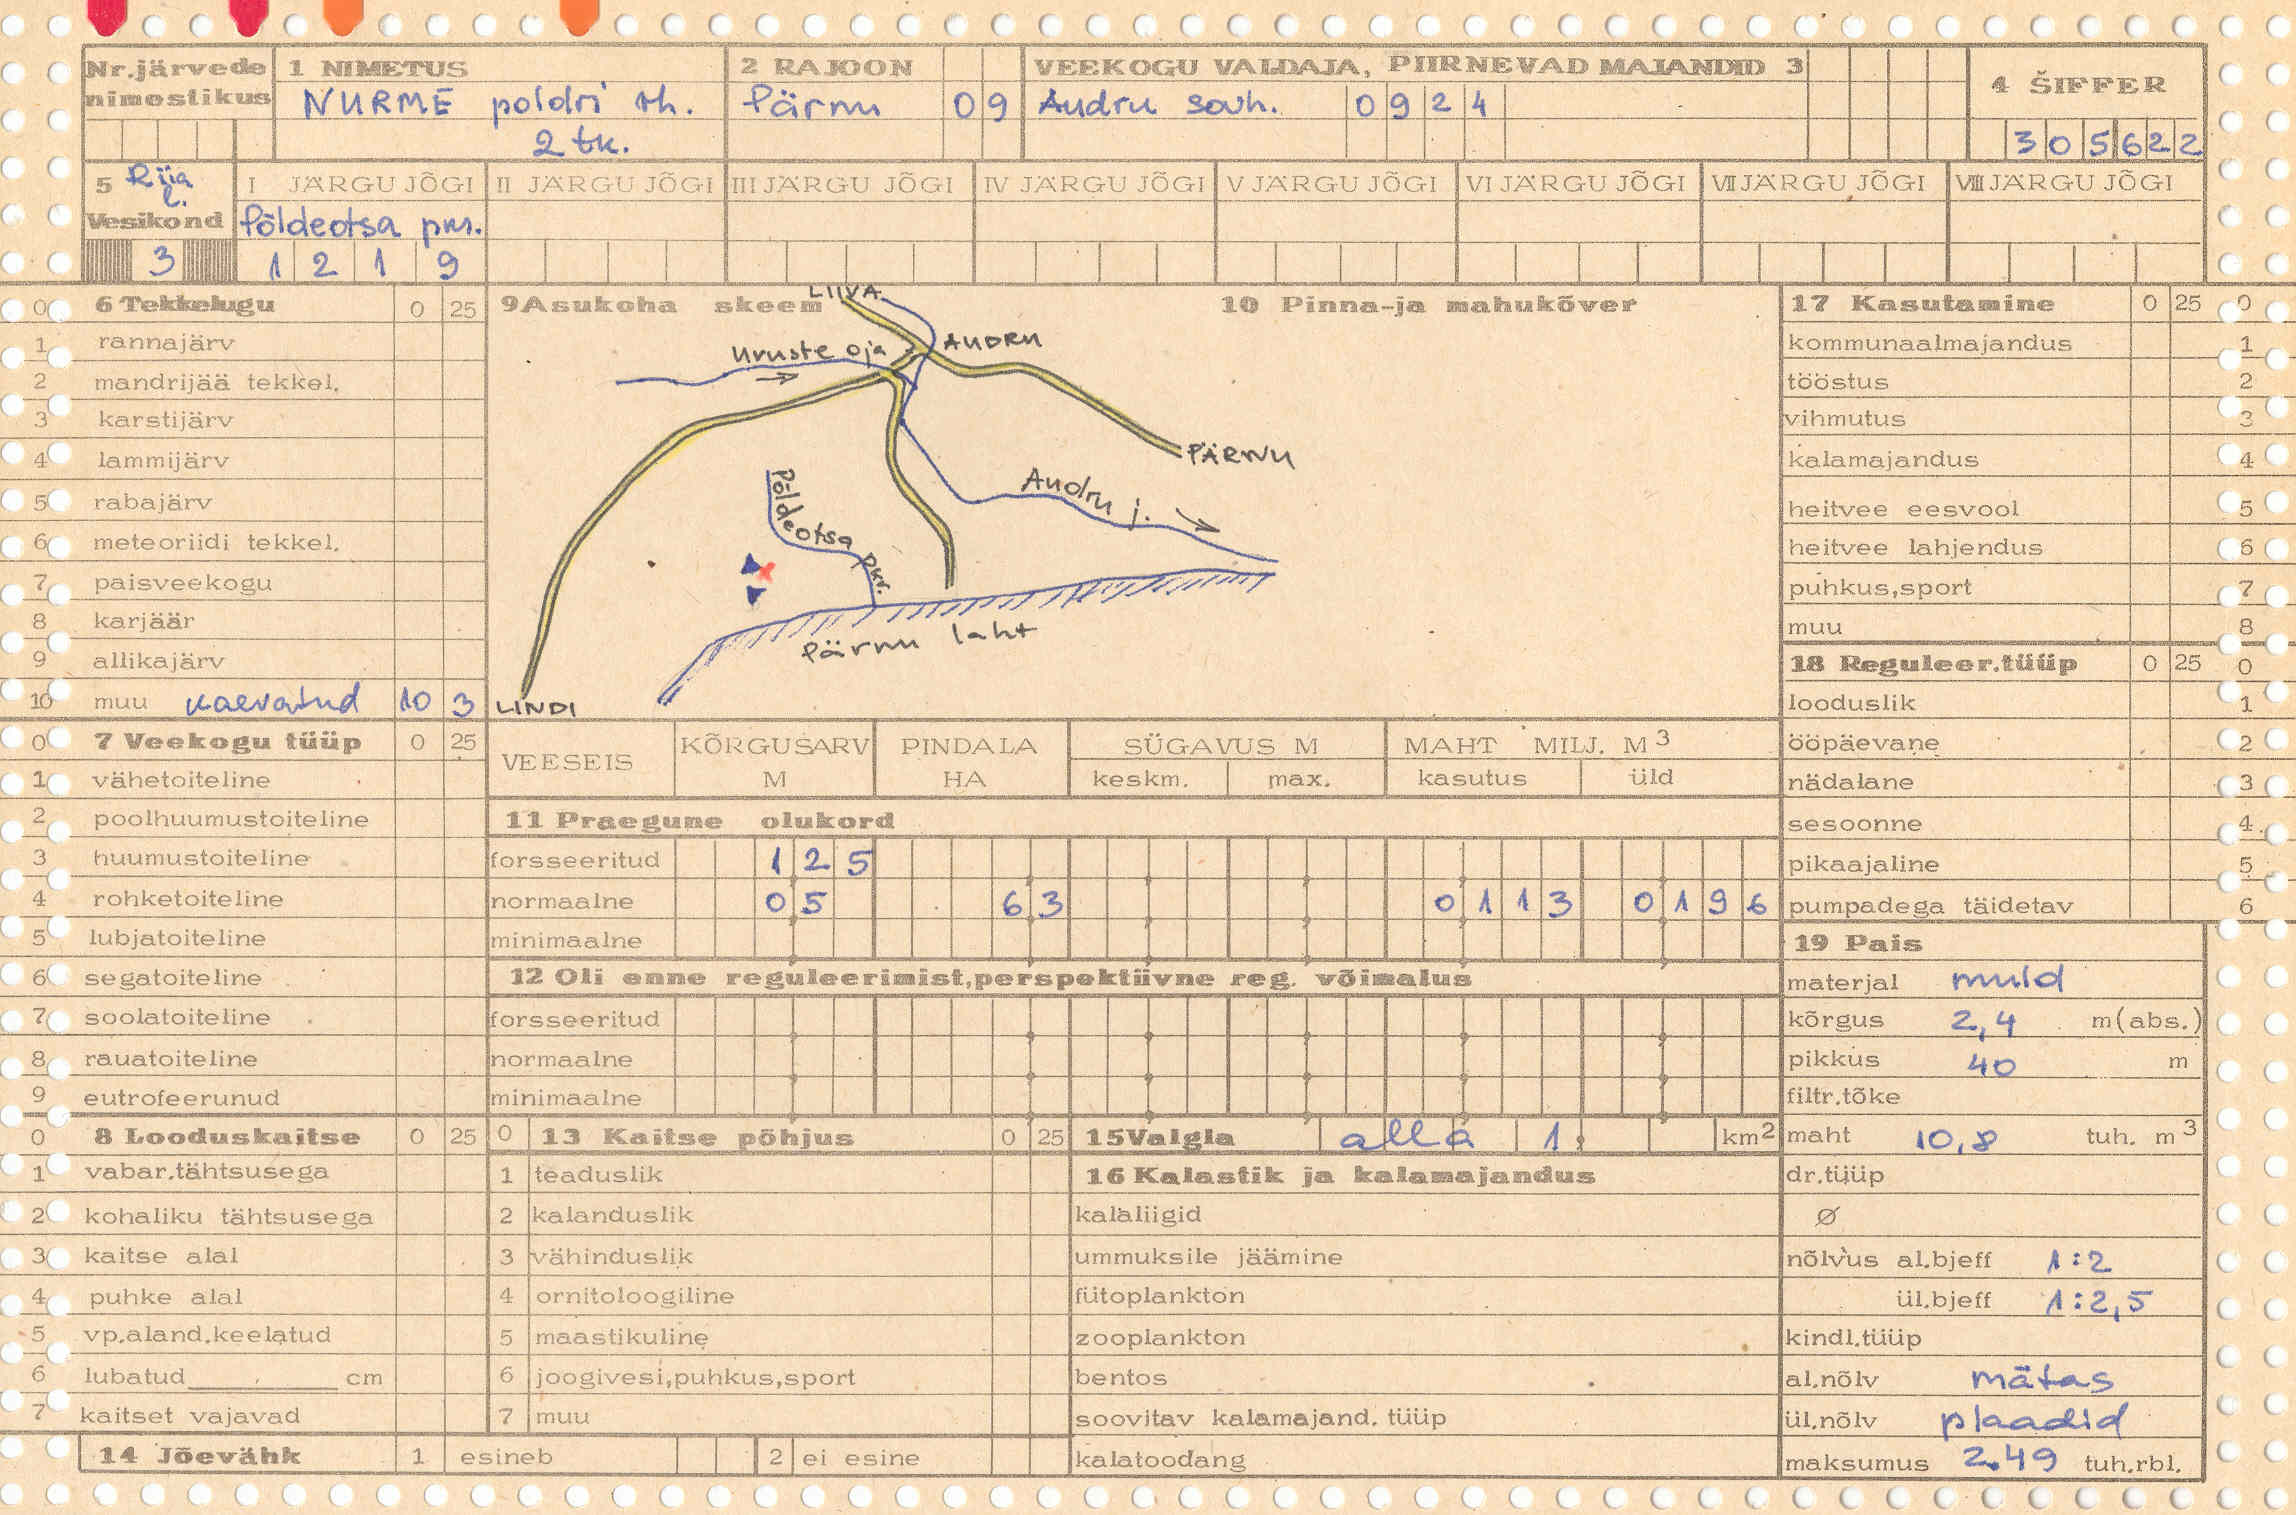 Nr.järvede nimestikus
1 NIMETUS
NURME poldri th.
2 tk.
2 RAJOON
Pärnu 09
VEEKOGU VALDAJA, PIIRNEVAD MAJANDID 3
Audru sovh. 0924
4 ŠIFFER
305622
5 Riia l.
Vesikond
3
I JÄRGU JÕGI
Põldeotsa pkr.
1219
II JÄRGU JÕGI
III JÄRGU JÕGI
IV JÄRGU JÕGI
V JÄRGU JÕGI
VI JÄRGU JÕGI
VII JÄRGU JÕGI
VIII JÄRGU JÕGI
0 6 Tekkelugu 0 25
1 rannajärv
2 mandrijää tekkel.
3 karstijärv
4 lammijärv
5 rabajärv
6 meteoriidi tekkel.
7 paisveekogu
8 karjäär
9 allikajärv
10 muu kaevatud 10 3
0 7 Veekogu tüüp 0 25
1 vähetoiteline
2 poolhuumustoiteline
3 huumustoiteline
4 rohketoiteline
5 lubjatoiteline
6 segatoiteline
7 soolatoiteline
8 rauatoiteline
9 eutrofeerunud
0 8 Looduskaitse 0 25
1 vabar.tähtsusega
2 kohaliku tähtsusega
3 kaitse alal
4 puhke alal
5 vp.aland.keelatud
6 lubatud cm
7 kaitset vajavad
14 Jõevähk 1 esineb 2 ei esine
9 Asukoha skeem
10 Pinna-ja mahukõver
LIIVA
Uruste oja
AUDRU
PÄRNU
Audru j.
Põldeotsa pkr.
Pärnu laht
LINDI
VEESEIS
KÕRGUSARV M
PINDALA HA
SÜGAVUS M
keskm. max.
MAHT MILJ. M3
kasutus üld
11 Praegune olukord
forsseeritud 125
normaalne 05 63 0113 0196
minimaalne
12 Oli enne reguleerimist,perspektiivne reg. võimalus
forsseeritud
normaalne
minimaalne
0 13 Kaitse põhjus 0 25
1 teaduslik
2 kalanduslik
3 vähinduslik
4 ornitoloogiline
5 maastikuline
6 joogivesi,puhkus,sport
7 muu
15 Valgla alla 1, km2
16 Kalastik ja kalamajandus
kalaliigid
ummuksile jäämine
fütoplankton
zooplankton
bentos
soovitav kalamajand. tüüp
kalatoodang
17 Kasutamine 0 25 0
kommunaalmajandus 1
tööstus 2
vihmutus 3
kalamajandus 4
heitvee eesvool 5
heitvee lahjendus 6
puhkus,sport 7
muu 8
18 Reguleer.tüüp 0 25 0
looduslik 1
ööpäevane 2
nädalane 3
sesoonne 4
pikaajaline 5
pumpadega täidetav 6
19 Pais
materjal muld
kõrgus 2,4 m(abs.)
pikkus 40 m
filtr.tõke
maht 10,8 tuh. m3
dr.tüüp
Ø
nõlvus al.bjeff 1:2
ül.bjeff 1:2,5
kindl.tüüp
al.nõlv mätas
ül.nõlv plaadid
maksumus 2.49 tuh.rbl.